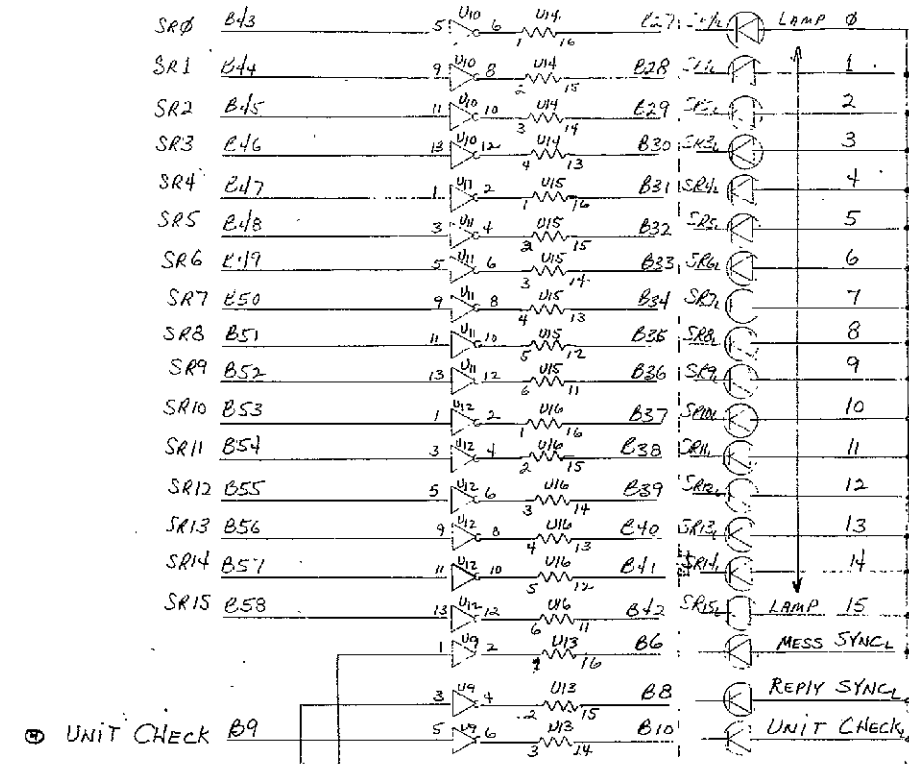 SRØ B43 5 U10 6 1 U14 16 LAMP Ø
SR1 B44 9 U10 8 2 U14 15 B28 1
SR2 B45 11 U10 10 3 U14 14 B29 2
SR3 B46 13 U10 12 4 U14 13 B30 SR3L 3
SR4 B47 1 U11 2 1 U15 16 B31 SR4L 4
SR5 B48 3 U11 4 2 U15 15 B32 SR5L 5
SR6 B49 5 U11 6 3 U15 14 B33 SR6L 6
SR7 B50 9 U11 8 4 U15 13 B34 SR7L 7
SR8 B51 11 U11 10 5 U15 12 B35 SR8L 8
SR9 B52 13 U11 12 6 U15 11 B36 SR9L 9
SR10 B53 1 U12 2 1 U16 16 B37 SR10L 10
SR11 B54 3 U12 4 2 U16 15 B38 SR11L 11
SR12 B55 5 U12 6 3 U16 14 B39 SR12L 12
SR13 B56 9 U12 8 4 U16 13 B40 SR13L 13
SR14 B57 11 U12 10 5 U16 12 B41 SR14L 14
SR15 B58 13 U12 12 6 U16 11 B42 SR15L LAMP 15
1 U9 2 U13 16 B6 MESS SYNCL
3 U9 4 2 U13 15 B8 REPLY SYNCL
UNIT CHECK B9 5 U9 6 3 U13 14 B10 UNIT CHECKL